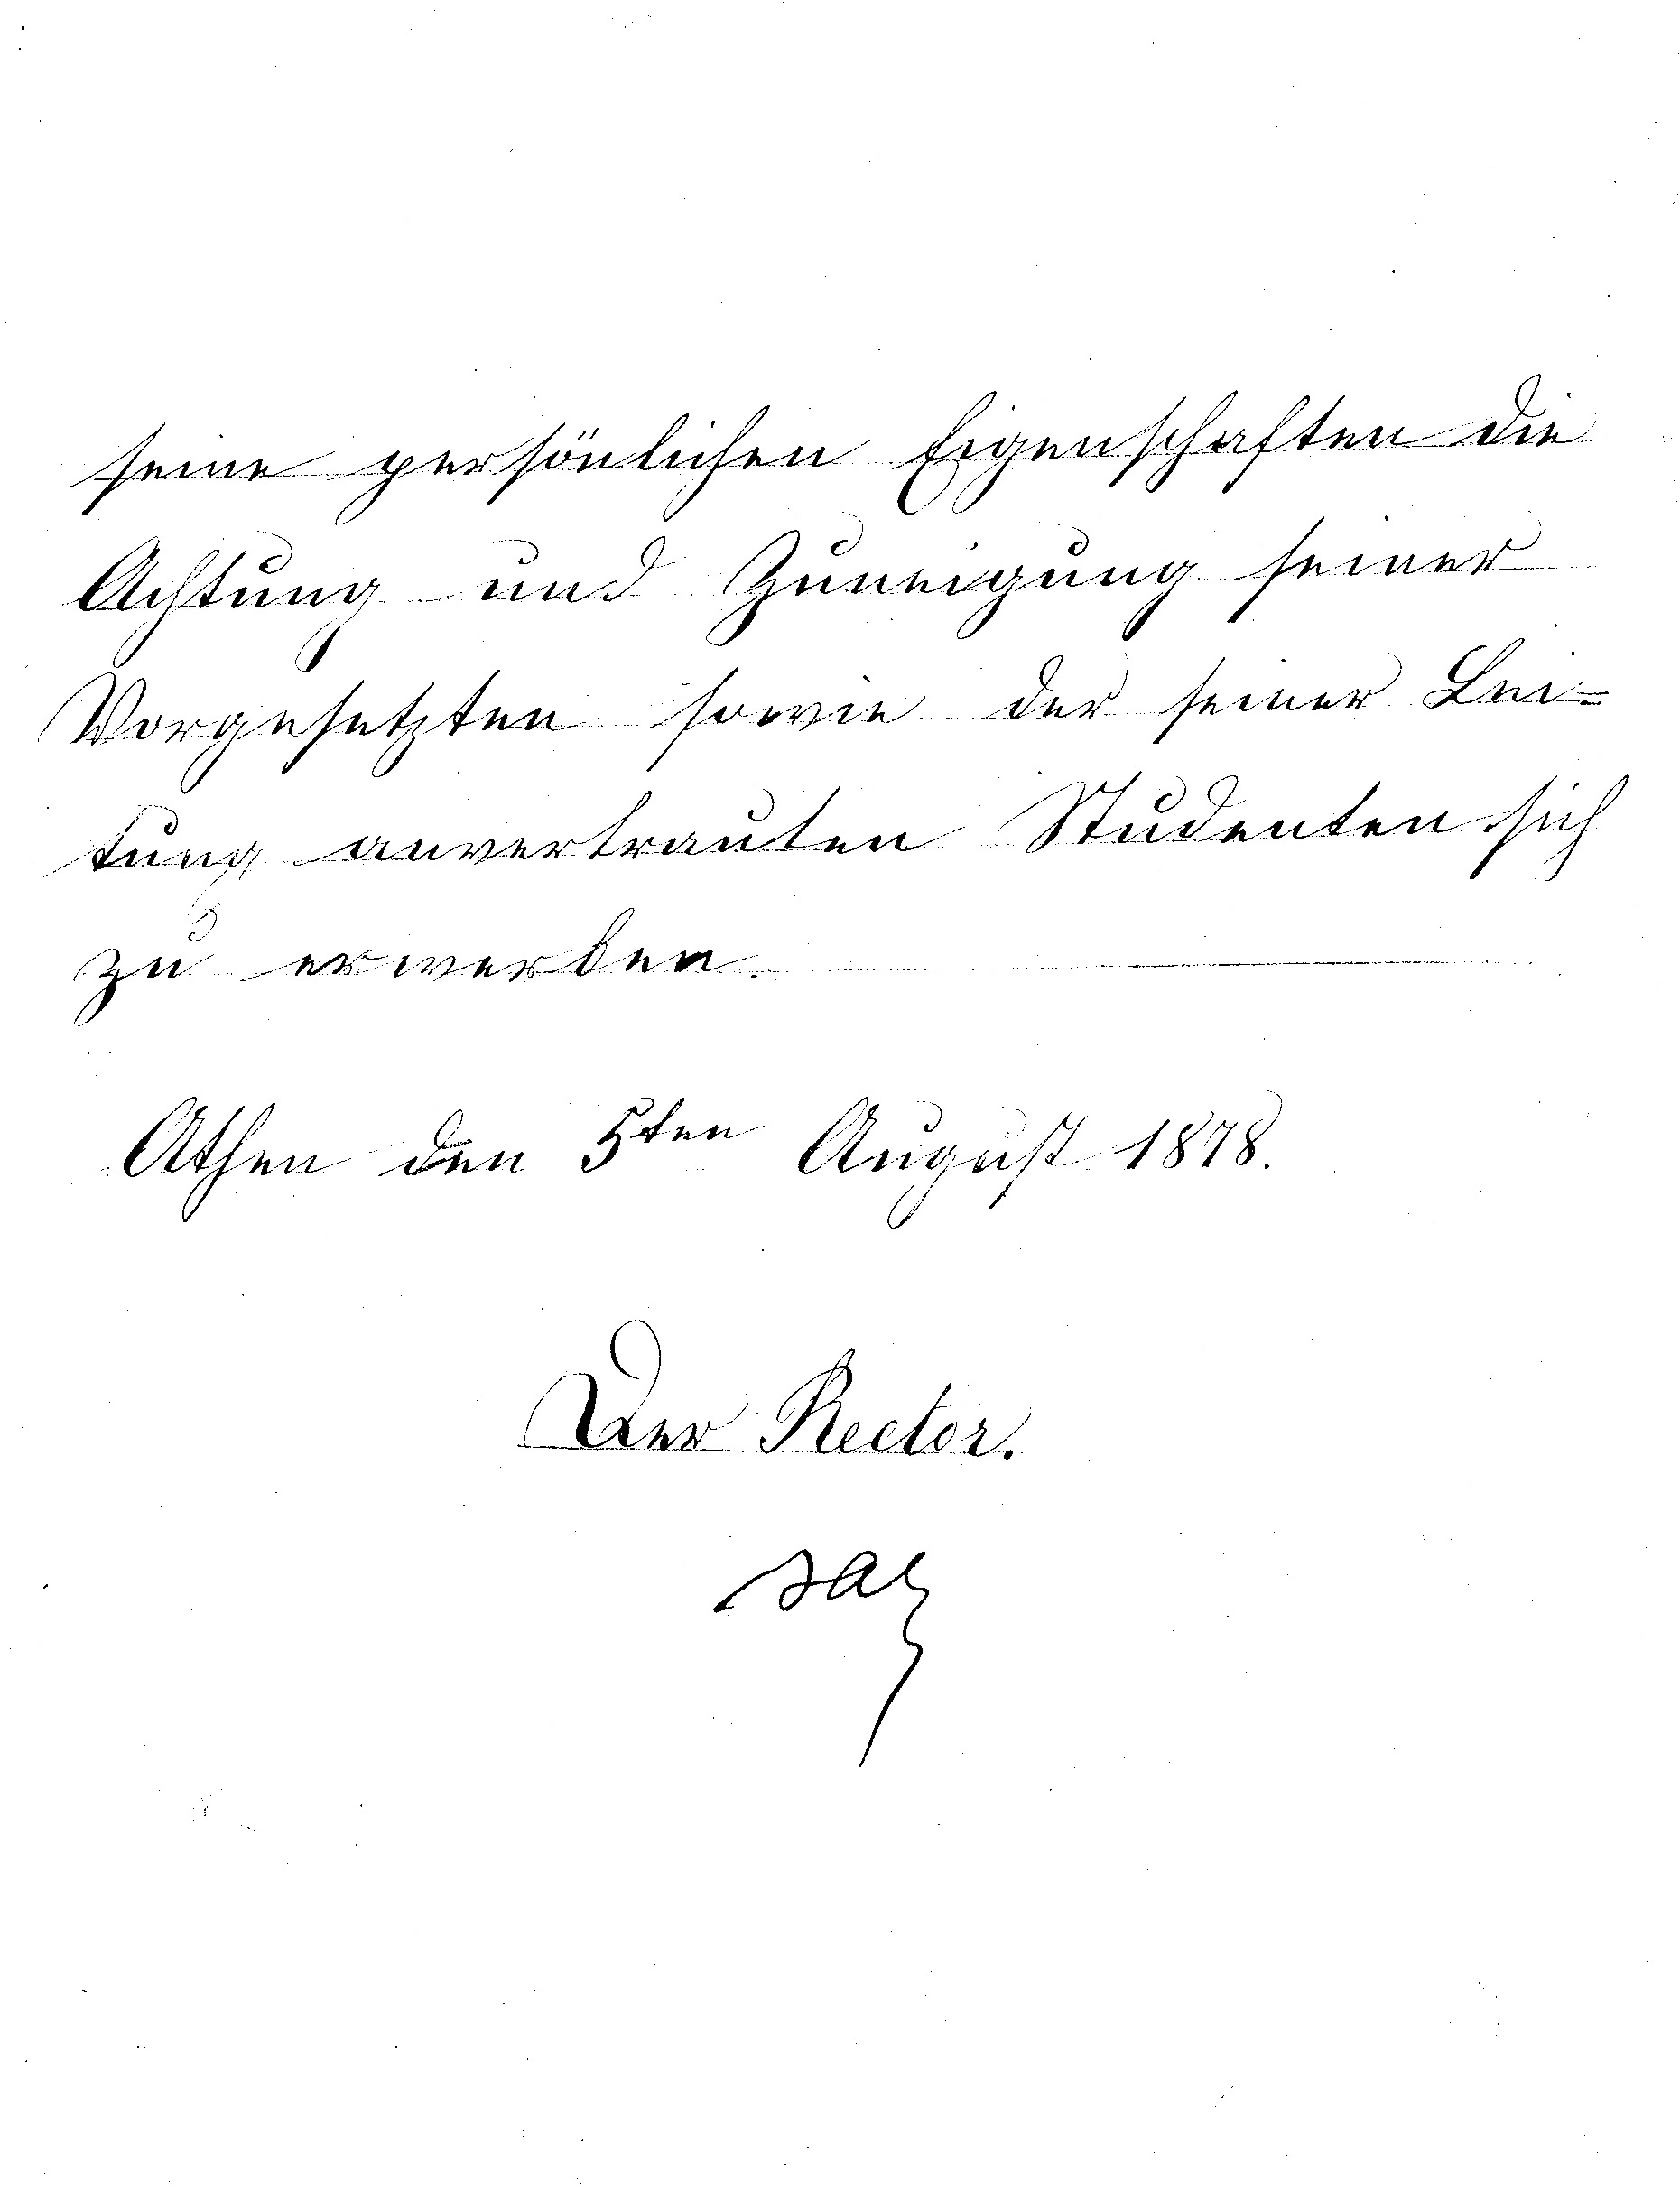 seine persönlichen Eigenschaften die
Achtung und Zuneigung seiner
Vorgesetzten sowie der seiner Lei-
tung anvertrauten Studenten sich
zu erwerben.
Athen den 5ten August 1878.
Der Rector.